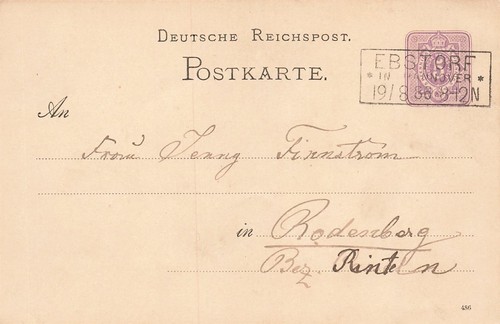 DEUTSCHE REICHSPOST.
POSTKARTE.
EBSTORF
* IN HANNOVER *
19/8 86 8-12N
An
Frau Jenny Finnström
in Rodenberg
Bez. Rinteln
486